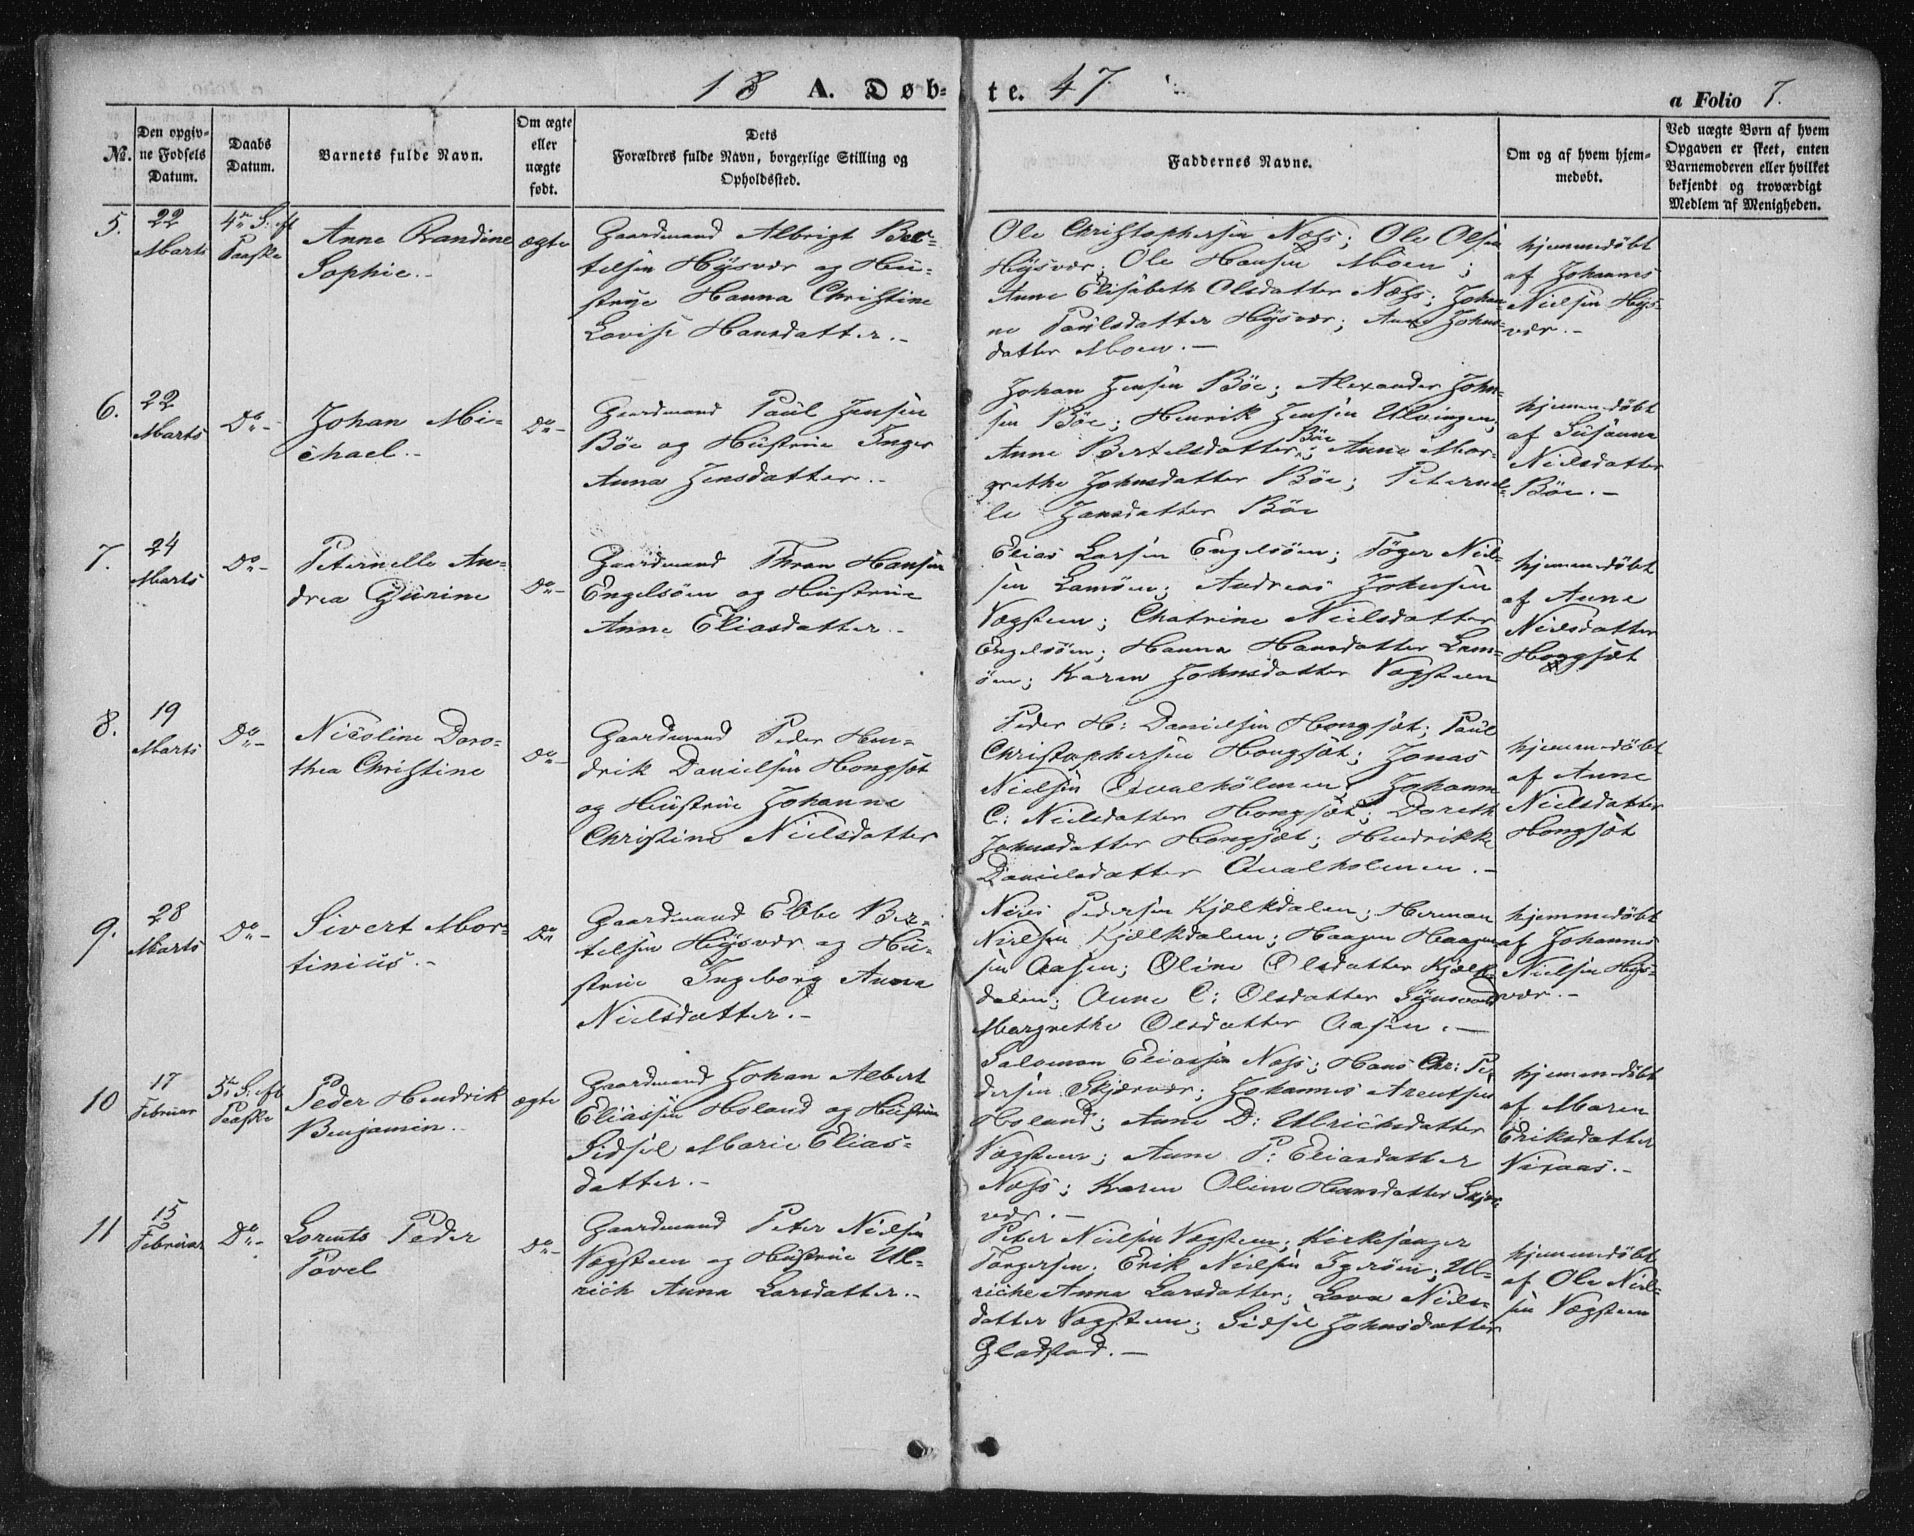 18 A. Døb- te. 47
a Folio 7.
No.
Den opgiv-
ne Fødsels
Datum.
Daabs
Datum.
Barnets fulde Navn.
Om ægte
eller
uægte
født.
Dets
Forældres fulde Navn, borgerlige Stilling og
Opholdssted.
Faddernes Navne.
Om og af hvem hjem-
medøbt.
Ved uægte Børn af hvem
Opgaven er skeet, enten
Barnemoderen eller hvilket
bekjendt og troværdigt
Medlem af Menigheden.
5.
22
Marts
4de S. eft
Paaske
Anne Randine
Sophie.-
ægte
Gaardmand Albrigt Ber-
telsen Hysvær og Hu-
strue Hanna Christine
Lovise Hansdatter.-
Ole Christophersen Næss; Ole Olsen
Hysvær; Ole Hansen Moen;
Anne Elisabeth Olsdatter Næss; Johan-
ne Paulsdatter Hysvær; Anne Johns-
datter Moen.-
hjemmedøbt
af Johannes
Nielsen Hys-
vær.-
6.
22
Marts
Do-
Johan Mi-
chael.-
Do-
Gaardmand Paul Jensen
Böe og Hustrue Inger
Anna Jensdatter.-
Johan Jensen Böe; Alexander John-
sen Böe; Henrik Jensen Ulvingen;
Anne Bertelsdatter Böe; Anne Mar-
grethe Johnsdatter Böe; Peternel-
le Jensdatter Böe
hjemmedøbt
af Susanna
Nielsdatter
Böe.-
7.
24
Marts
Do-
Peternelle An-
drea Gurine
Do-
Gaardmand Thron Hansen
Engelsöen og Hustrue
Anne Eliasdatter.-
Elias Larsen Engelsöen; Töger Niel-
sen Lamöen; Andreas Johnsen
Vægsteen; Chatrine Nielsdatter
Engelsöen; Hanna Hansdatter Lam-
öen; Karen Johnsdatter Vægsteen
hjemmedøbt
af Anne
Nielsdatter
Hongsæt
8.
19
Marts
Do-
Nicoline Doro-
thea Christine
Do-
Gaardmand Peder Hen-
drik Danielsen Hongsæt
og Hustrue Johanne
Christine Nielsdatter
Peder H: Danielsen Hongsæt; Paul
Christophersen Hongsæt; Jonas
Nielsen Qvalholmen; Johanne
C: Nielsdatter Hongsæt; Doreth
Johnsdatter Hongsæt; Hendrikke
Danielsdatter Qvalholmen.-
hjemmedøbt
af Anne
Nielsdatter
Hongsæt
9.
28
Marts
Do-
Sivert Mor-
tinius.-
Do
Gaardmand Ebbe Ber-
telsen Hysvær og Hu-
strue Ingeborg Anna
Nielsdatter.-
Niels Pedersen Kjælkdalen; Herman
Nielsen Kjælkdalen; Haagen Haagen-
sen Aasen; Oline Olsdatter Kjælk-
dalen; Anne C: Olsdatter
Margrethe Olsdatter Aasen.-
hjemmedøbt
af Johannes
Nielsen Hys-
vær.-
10
17
Februar
5te S. eft
Paaske
Peder Hendrik
Benjamin.-
ægte
Gaardmand Johan Albert
Eliassen Holand og Hustrue
Sidsel Marie Elias-
datter.-
Salomon Eliassen Næss; Hans Chr: Pe-
dersen Skjærvær; Johannes Arentsen
Holand; Anne D: Ulrichsdatter
Vægsteen; Anne P: Eliasdatter
Næss; Karen Oline Hansdatter Skjær-
vær.-
hjemmedøbt
af Maren
Eriksdatter
Vixaas.-
11
15
Februar
Do-
Lorents Peder
Povel
Do-
Gaardmand Peter Nielsen
Vægsteen og Hustrue Ul-
rich Anna Larsdatter.-
Peter Nielsen Vægsteen; Kirkesanger
Torgersen; Erik Nielsen Igeröen; Ul-
riche Anna Larsdatter; Lava Niels-
datter Vægsteen; Sidsel Johnsdatter
Gladstad.-
hjemmedøbt
af Ole Niel-
sen Vægsteen